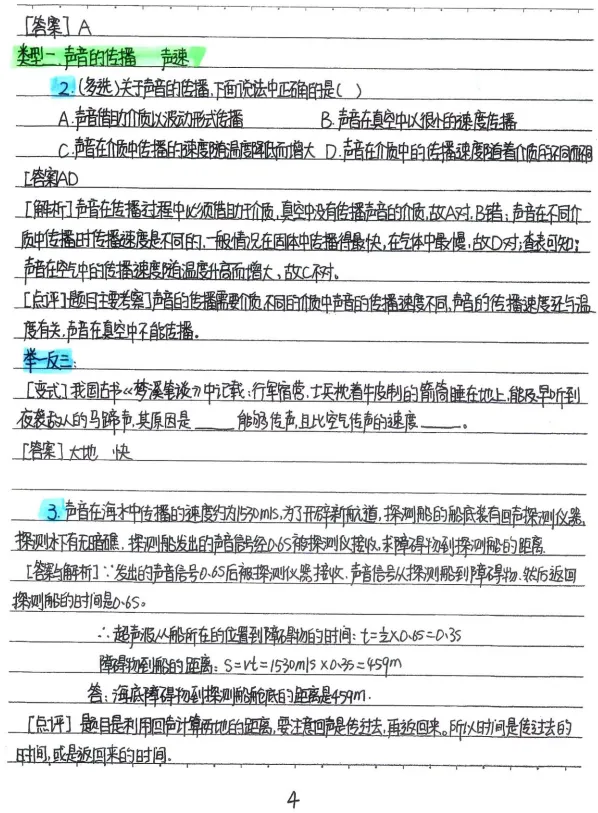 [答案] A
类型二、声音的传播 声速
2.(多选)关于声音的传播,下面说法中正确的是( )
A.声音借助介质以波动形式传播 B.声音在真空中以很小的速度传播
C.声音在介质中传播的速度随温度降低而增大 D.声音在介质中的传播速度随着介质的不同而不同
[答案]AD
[解析]声音在传播过程中必须借助于介质,真空中没有传播声音的介质,故A对,B错;声音在不同介
质中传播时传播速度是不同的,一般情况在固体中传播得最快,在气体中最慢,故D对;查表可知:
声音在空气中的传播速度随温度升高而增大,故C不对。
[点评]题目主要考察了声音的传播需要介质,不同的介质中声音的传播速度不同,声音的传播速度还与温
度有关,声音在真空中不能传播。
举一反三:
[变式]我国古书《梦溪笔谈》中记载:行军宿营,士兵枕着牛皮制的箭筒睡在地上,能及早听到
夜袭敌人的马蹄声,其原因是____能够传声,且比空气传声的速度____。
[答案]大地 快
3.声音在海水中传播的速度约为1530m/s,为了开辟新航道,探测船的船底装有回声探测仪器,
探测水下有无暗礁,探测船发出的声音信号经0.6S被探测仪接收,求障碍物到探测船的距离.
[答案与解析]∵发出的声音信号0.6S后被探测仪器接收,声音信号从探测船到障碍物,然后返回
探测船的时间是0.6S。
∴超声波从船所在的位置到障碍物的时间:t=½×0.6S=0.3S
障碍物到船的距离:S=vt=1530m/s×0.3S=459m
答:海底障碍物到探测船舱底的距离是459m.
[点评] 题目是利用回声计算两地的距离,要注意回声是传过去,再返回来。所以时间是传过去的
时间,或是返回来的时间.
4